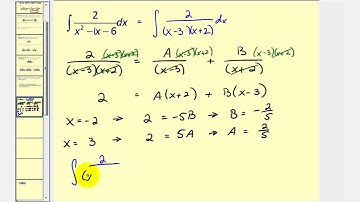 ∫ 2/(x²-1x-6) dx = ∫ 2/((x-3)(x+2)) dx
2 (x-3)(x+2)/((x-3)(x+2)) = A (x-3)(x+2)/(x-3) + B (x-3)(x+2)/(x+2)
2 = A(x+2) + B(x-3)
x=-2 → 2 = -5B → B = -2/5
x= 3 → 2 = 5A → A = 2/5
∫ 2/(x